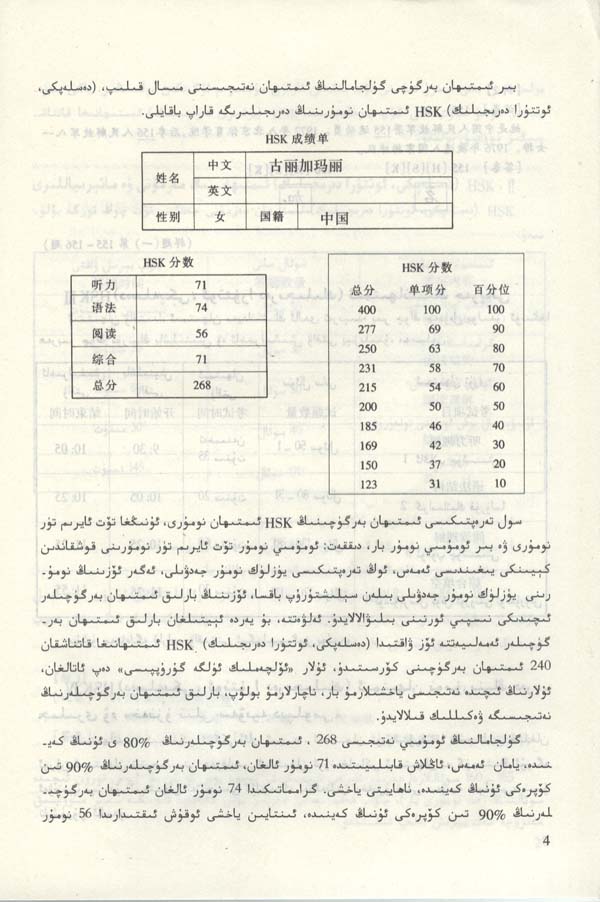 بىر ئىمتىھان بەرگۈچى گۈلجامالنىڭ ئىمتىھان نەتىجىسىنى مىسال قىلىپ، (دەسلەپكى،
ئوتتۇرا دەرىجىلىك) HSK ئىمتىھان نومۇرىنىڭ دەرىجىلىرىگە قاراپ باقايلى.
HSK 成绩单
姓名 中文 古丽加玛丽
英文
性别 女 国籍 中国
HSK 分数
听力 71
语法 74
阅读 56
综合 71
总分 268
HSK 分数
总分 单项分 百分位
400 100 100
277 69 90
250 63 80
231 58 70
215 54 60
200 50 50
185 46 40
169 42 30
150 37 20
123 31 10
سول تەرەپتىكىسى ئىمتىھان بەرگۈچىنىڭ HSK ئىمتىھان نومۇرى، ئۇنىڭغا تۆت ئايرىم تۈر
نومۇرى ۋە بىر ئومۇمىي نومۇر بار، دىققەت: ئومۇمىي نومۇر تۆت ئايرىم تۈر نومۇرىنى قوشقاندىن
كېيىنكى يىغىندىسى ئەمەس، ئوڭ تەرەپتىكىسى يۈزلۈك نومۇر جەدۋىلى، ئەگەر ئۆزىنىڭ نومۇ-
رىنى يۈزلۈك نومۇر جەدۋىلى بىلەن سېلىشتۇرۇپ باقسا، ئۆزىنىڭ بارلىق ئىمتىھان بەرگۈچىلەر
ئىچىدىكى نىسپىي ئورنىنى بىلىۋالالايدۇ. ئەلۋەتتە، بۇ يەردە ئېيتىلغان بارلىق ئىمتىھان بەر-
گۈچىلەر ئەمەلىيەتتە ئۆز ۋاقتىدا (دەسلەپكى، ئوتتۇرا دەرىجىلىك) HSK ئىمتىھانىغا قاتناشقان
240 ئىمتىھان بەرگۈچىنى كۆرسىتىدۇ، ئۇلار «ئۆلچەملىك ئۈلگە گۇرۇپپىسى» دەپ ئاتالغان،
ئۇلارنىڭ ئىچىدە نەتىجىسى ياخشىلارمۇ بار، ناچارلارمۇ بولۇپ، بارلىق ئىمتىھان بەرگۈچىلەرنىڭ
نەتىجىسىگە ۋەكىللىك قىلالايدۇ.
گۈلجامالنىڭ ئومۇمىي نەتىجىسى 268 ، ئىمتىھان بەرگۈچىلەرنىڭ 80% ى ئۇنىڭ كەي-
نىدە، يامان ئەمەس، ئاڭلاش قابىلىيىتىدە 71 نومۇر ئالغان، ئىمتىھان بەرگۈچىلەرنىڭ 90% تىن
كۆپرەكى ئۇنىڭ كەينىدە، ناھايىتى ياخشى. گرامماتىكىدا 74 نومۇر ئالغان ئىمتىھان بەرگۈچى-
لەرنىڭ 90% تىن كۆپرەكى ئۇنىڭ كەينىدە، ئىنتايىن ياخشى ئوقۇش ئىقتىدارىدا 56 نومۇر
4